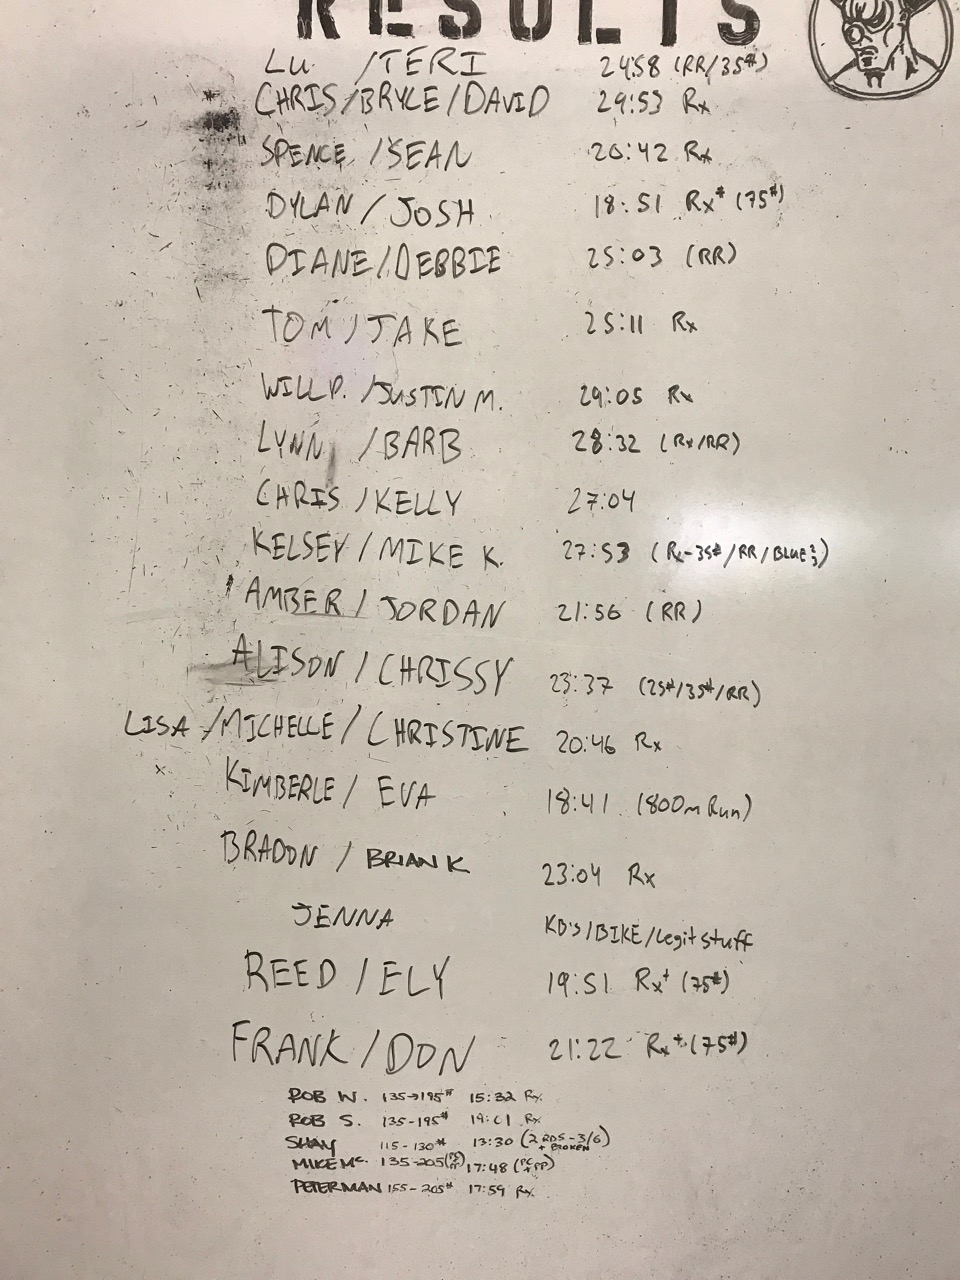 RESULTS
LU /TERI 24:58 (RR/35#)
CHRIS/BRYCE/DAVID 29:53 Rx
SPENCE /SEAN 20:42 Rx
DYLAN / JOSH 18:51 Rx+ (75#)
DIANE/DEBBIE 25:03 (RR)
TOM / JAKE 25:11 Rx
WILL P. /JUSTIN M. 29:05 Rx
LYNN /BARB 28:32 (Rx/RR)
CHRIS /KELLY 27:04
KELSEY / MIKE K. 27:53 (Rx-35#/RR/BLUE
AMBER / JORDAN 21:56 (RR)
ALISON / CHRISSY 23:37 (25#/35#/RR)
LISA /MICHELLE / CHRISTINE 20:46 Rx
KIMBERLE / EVA 18:41 (800m Run)
BRADON / BRIAN K 23:04 Rx
JENNA KB's/BIKE/Legit stuff
REED / ELY 19:51 Rx+ (75#)
FRANK / DON 21:22 Rx+ (75#)
ROB W. 135→195# 15:32 Rx
ROB S. 135-195# Rx
SHAY 115-130# 13:30 (2 RDS-3/6) + BROKEN
MIKE Mc. 135-205 17:48 (PC + PP)
PETERMAN 155-205# 17:59 Rx